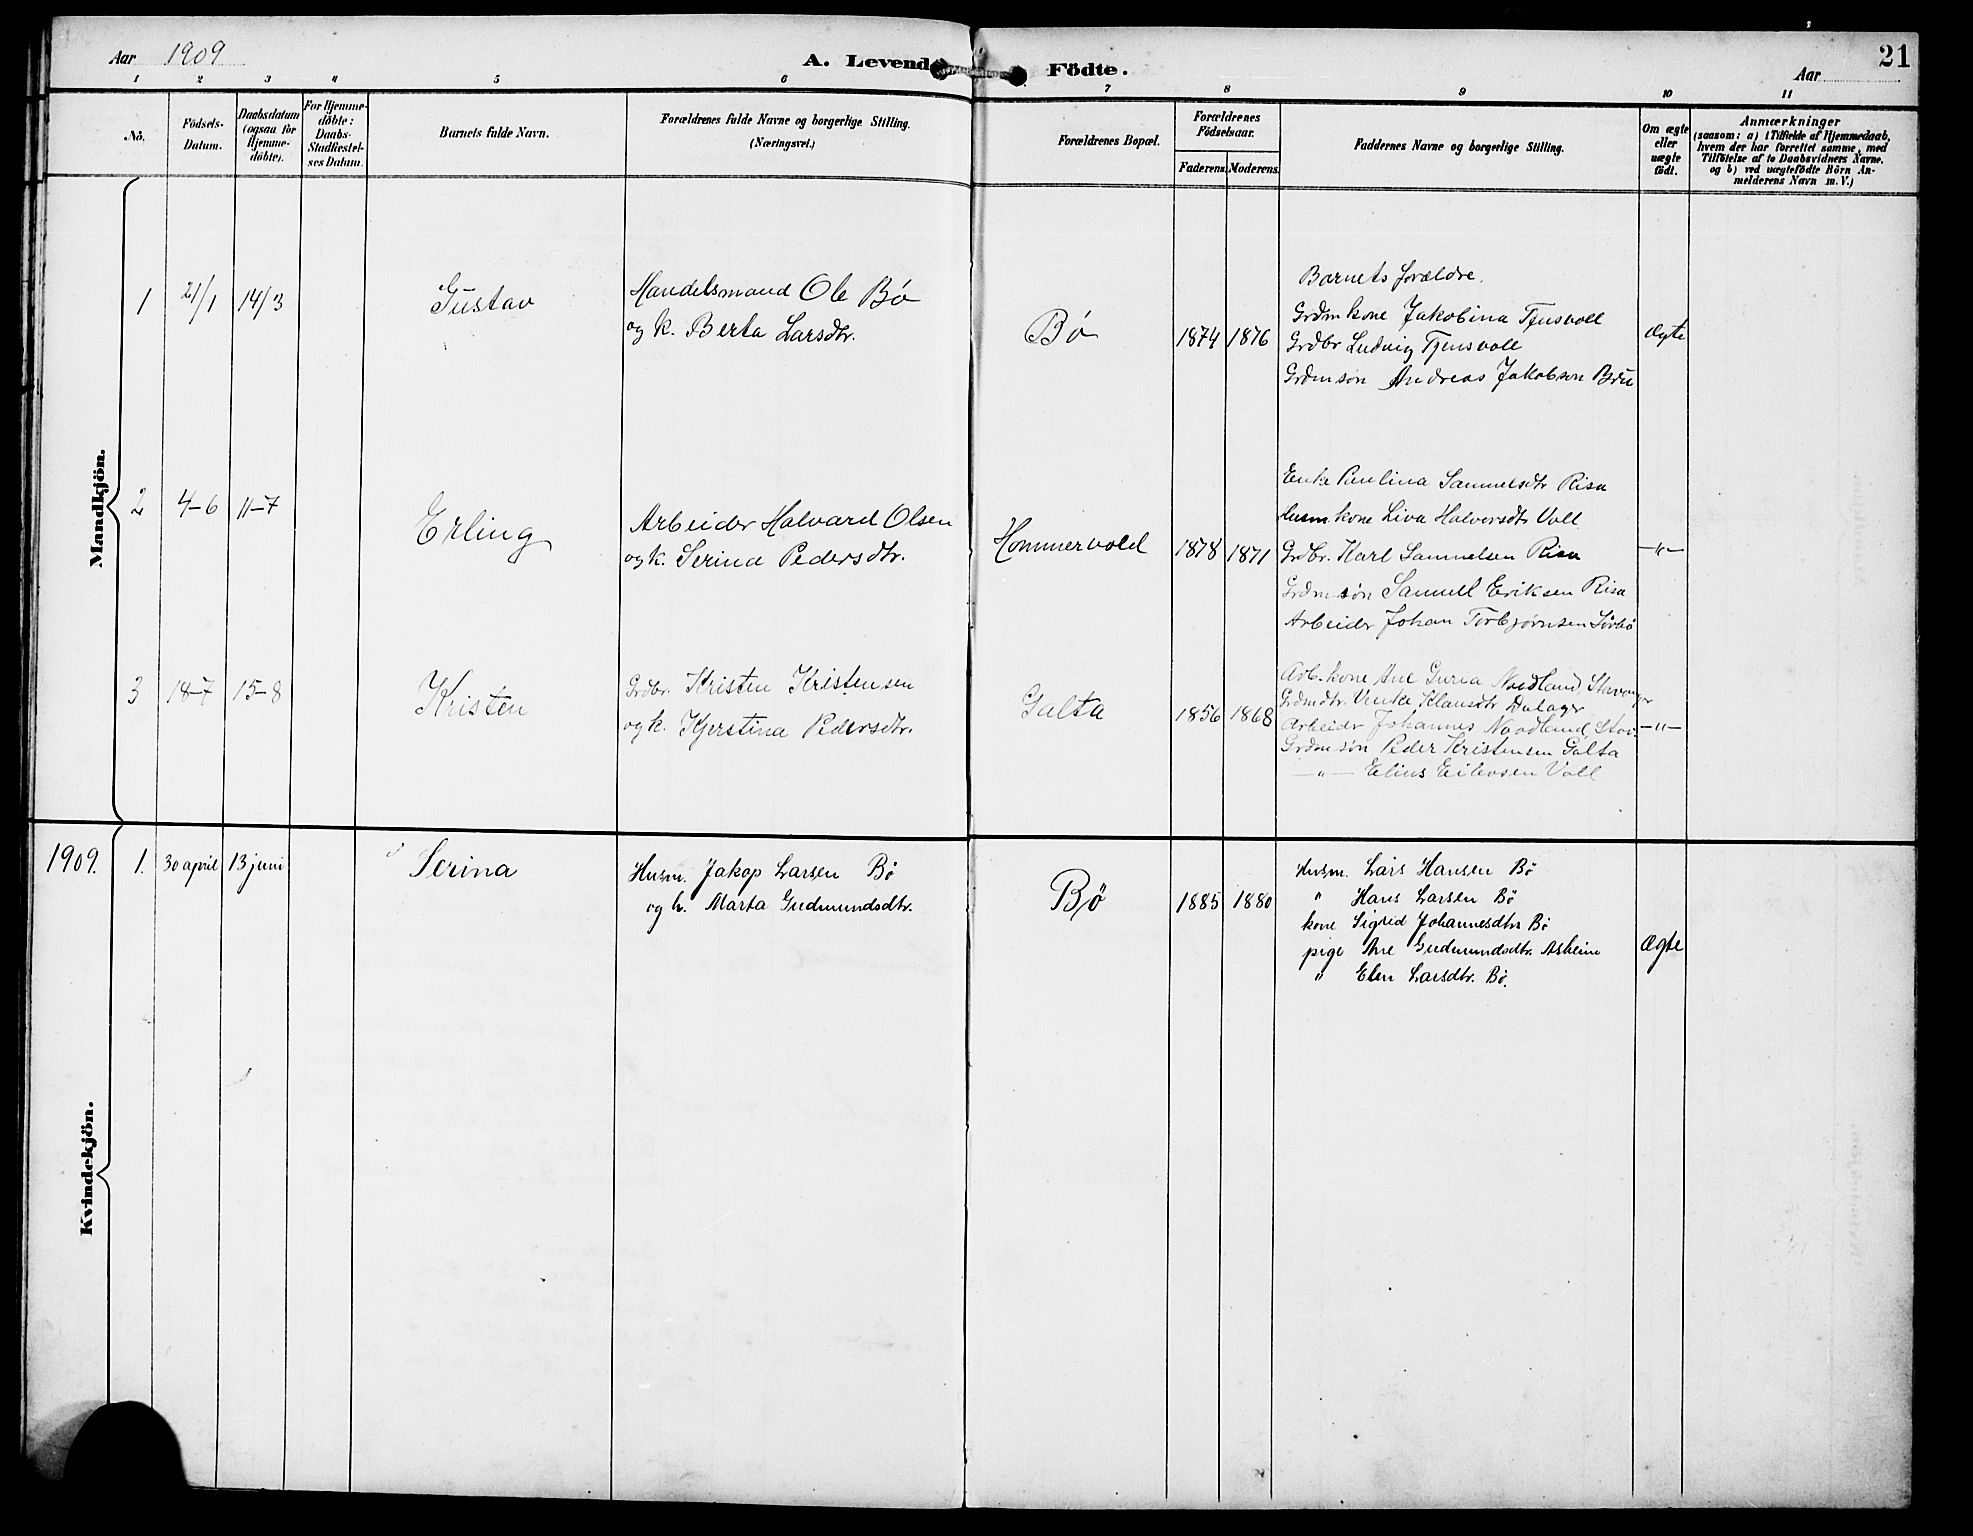 Aar 1909
A. Levende Födte.
21
Aar
1 2 3 4 5 6 7 8 9 10 11
Nö.
Födsels-Datum.
Daabsdatum (ogsaa for Hjemme-döbte).
For Hjemme-döbte: Daabs-Stadfæstel-ses Datum.
Barnets fulde Navn.
Forældrenes fulde Navne og borgerlige Stilling. (Næringsvei.)
Forældrenes Bopæl.
Forældrenes Födselsaar.
Faderens. Moderens.
Faddernes Navne og borgerlige Stilling.
Om ægte eller uægte födt.
Anmærkninger
(saasom: a) i Tilfælde af Hjemmedaab, hvem der har forrettet samme, med Tilföielse af to Daabsvidners Navne. og b) ved uægtefödte Börn An-melderens Navn m. V.)
Mandkjön.
1 21/1 14/3 Gustav
Handelsmand Ole Bø
og k. Berta Larsdtr.
Bø 1874 1876
Barnets forældre.
Grdm kone Jakobina Tjusvoll
Grdbr Ludvig Tjensvoll
Grdmsön Andreas Jakobsen Bru
Ægte
2 4-6 11-7 Erling
Arbeider Halvard Olsen
og k. Serina Pedersdtr.
Hommervold 1878 1871
Enke Paulina Samuelsdtr Risa
Husm kone Liva Halversdtr Voll
Grdbr. Karl Samuelsen Risa
Grdm søn Samuel Eriksen Risa
Arbeider Johan Torbjørnsen Sörbö
-"-
3 18-7 15-8 Kristen
Grdbr. Kristen Kristensen
og k. Kjerstina Pedersdtr.
Galta 1856 1868
Arb. kone Ane Guria Nordland, Stavanger
Grdmdtr. Venke Klausdtr Dalager
Arbeider Johannes Nordland, Stav.
Grdm søn Peder Kristensen Galta
-"- Elius Eilevsen Voll
-"-
Kvindekjön.
1909. 1. 30 april 13 juni Serina
Husm. Jakop Larsen Bø
og h. Marta Gudmundsdtr.
Bø 1885 1880
Husm. Lars Hansen Bø
" Hans Larsen Bø
kone Sigrid Johannesdtr Bø
pige Ane Gudmundsdtr. Asheim
" Elen Larsdtr. Bø.
Ægte